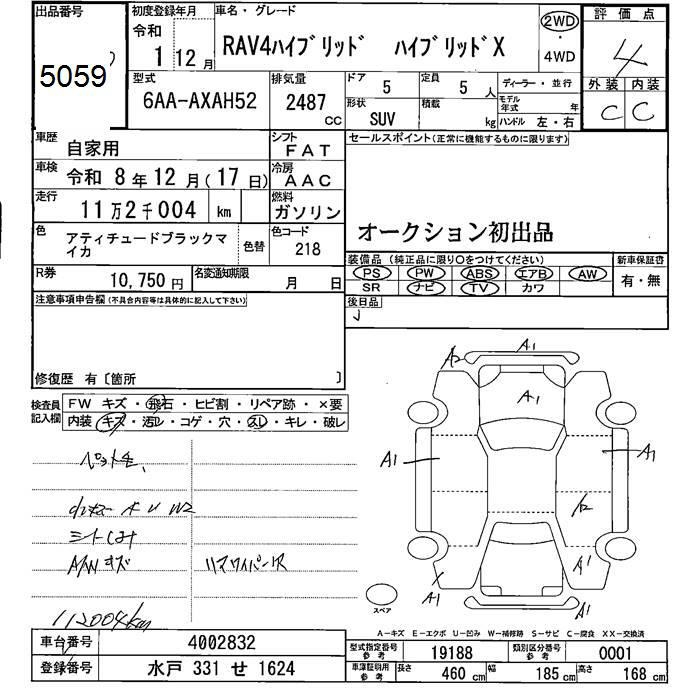 出品番号
初度登録年月
車名・グレード
評価点
5059
令和
1 12月
RAV4ハイブリッド ハイブリッドX
2WD
4WD
4
外装 内装
C C
型式
6AA-AXAH52
排気量
2487
cc
ドア
5
定員
5人
ディーラー・並行
形状
SUV
積載
kg
モデル年式
年
ハンドル 左・右
車歴
自家用
シフト
FAT
セールスポイント(正常に機能するものに限ります)
車検
令和 8年12月(17日)
冷房
AAC
走行
11万2千004 km
燃料
ガソリン
オークション初出品
色
アティチュードブラックマイカ
色替
色コード
218
装備品 (純正品に限り○をつけてください)
新車保証書
PS PW ABS エアB AW
有・無
SR ナビ TV カワ
R券
10,750円
名変通知期限
月 日
後日品
注意事項申告欄(不具合内容等は具体的に記入して下さい)
修復歴 有〔箇所 〕
検査員記入欄
FW キズ・飛石・ヒビ割・リペア跡・×要
内装 キズ・汚レ・コゲ・穴・スレ・キレ・破レ
ペット毛、
シートしみ
A/Wキズ
リアワイパーレス
112004km
A1
A2
A1
A1
A1
A2
A1
A1
A1
スペア
A-キズ E-エクボ U-凹み W-補修跡 S-サビ C-腐食 XX-交換済
車台番号
4002832
型式指定番号
参考
19188
類別区分番号
参考
0001
登録番号
水戸 331 せ 1624
車庫証明用
参考
長さ
460 cm
幅
185 cm
高さ
168 cm